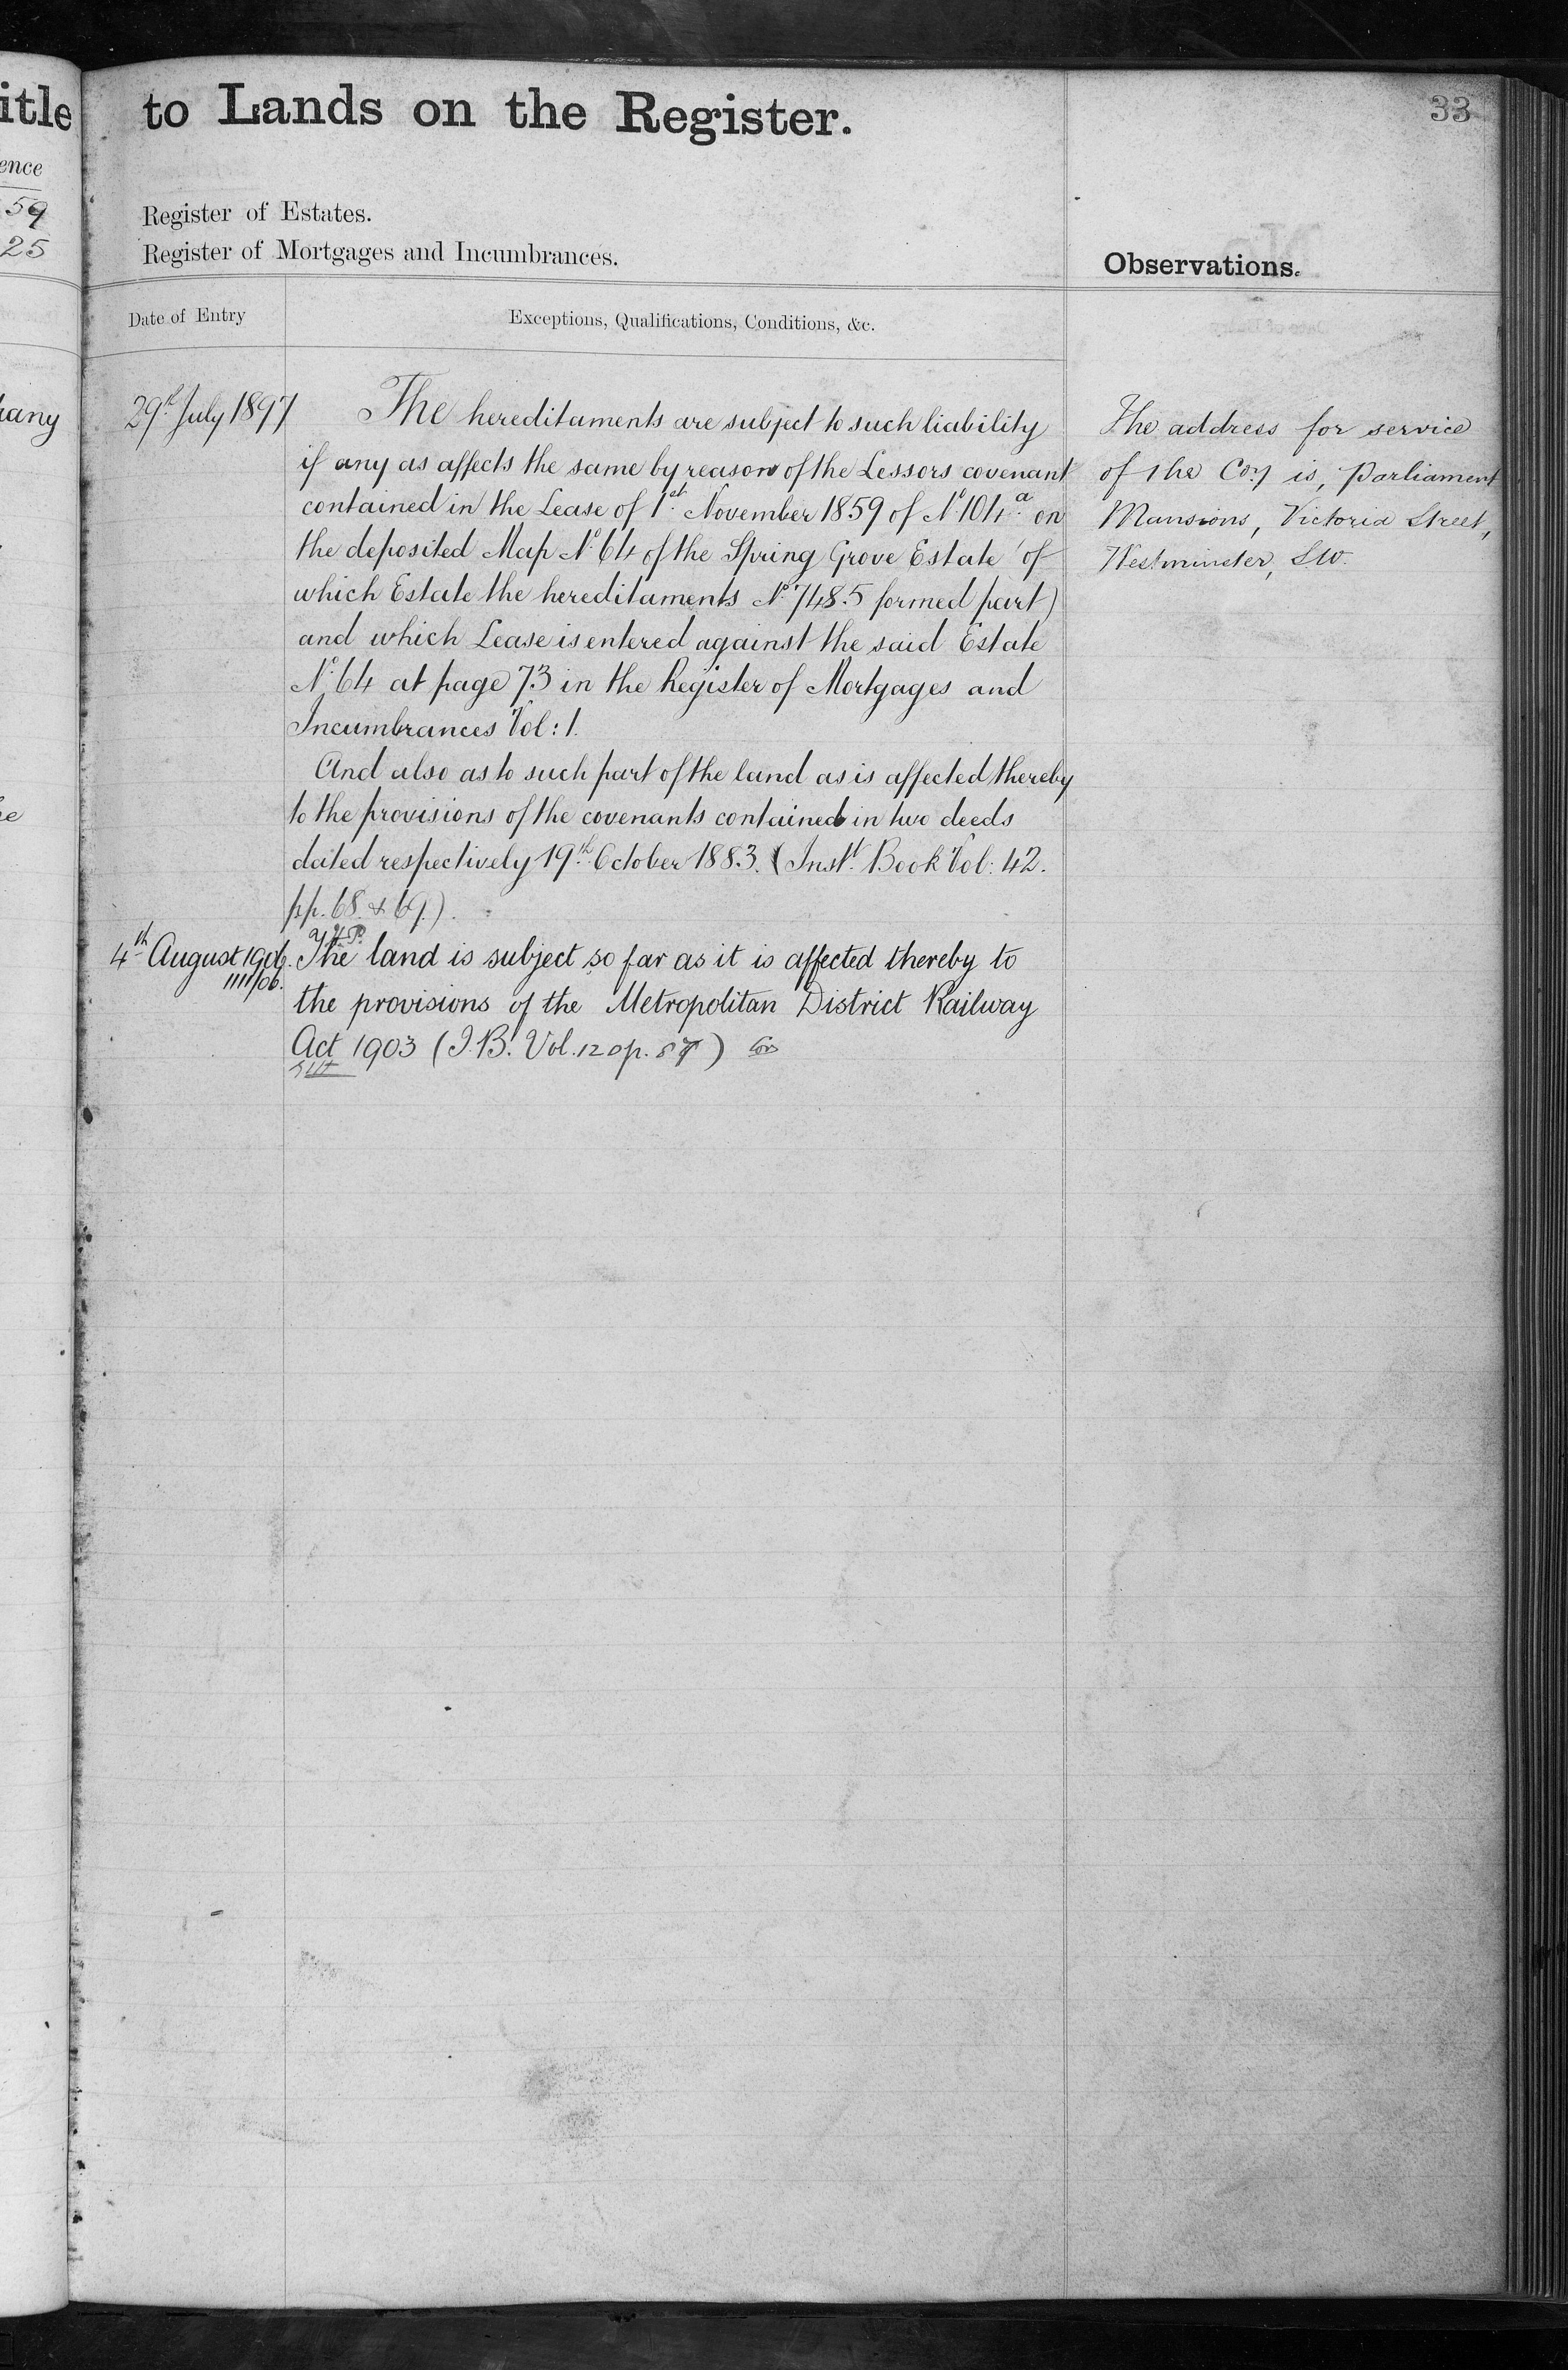 itle
ence
59
25
pany
to Lands on the Register.
33
Register of Estates.
Register of Mortgages and Incumbrances.
Observations.
Date of Entry
Exceptions, Qualifications, Conditions, &c.
29th July 1897
The hereditaments are subject to such liability
if any as affects the same by reason of the Lessors covenant
contained in the Lease of 1st November 1859 of No 104a on
the deposited Map No 64 of the Spring Grove Estate (of
which Estate the hereditaments No 748.5 formed part)
and which Lease is entered against the said Estate
No 64 at page 73 in the Register of Mortgages and
Incumbrances Vol: 1.
And also as to such part of the land as is affected thereby
to the provisions of the covenants contained in two deeds
dated respectively 19th October 1883. (Inst. Book Vol: 42.
pp. 68 & 69.).
4th August 1906.
1111/06.
The land is subject so far as it is affected thereby to
the provisions of the Metropolitan District Railway
Act 1903 (I.B. Vol. 120 p. 87)
The address for service
of the Coy is, Parliament
Mansions, Victoria Street,
Westminster, S.W.